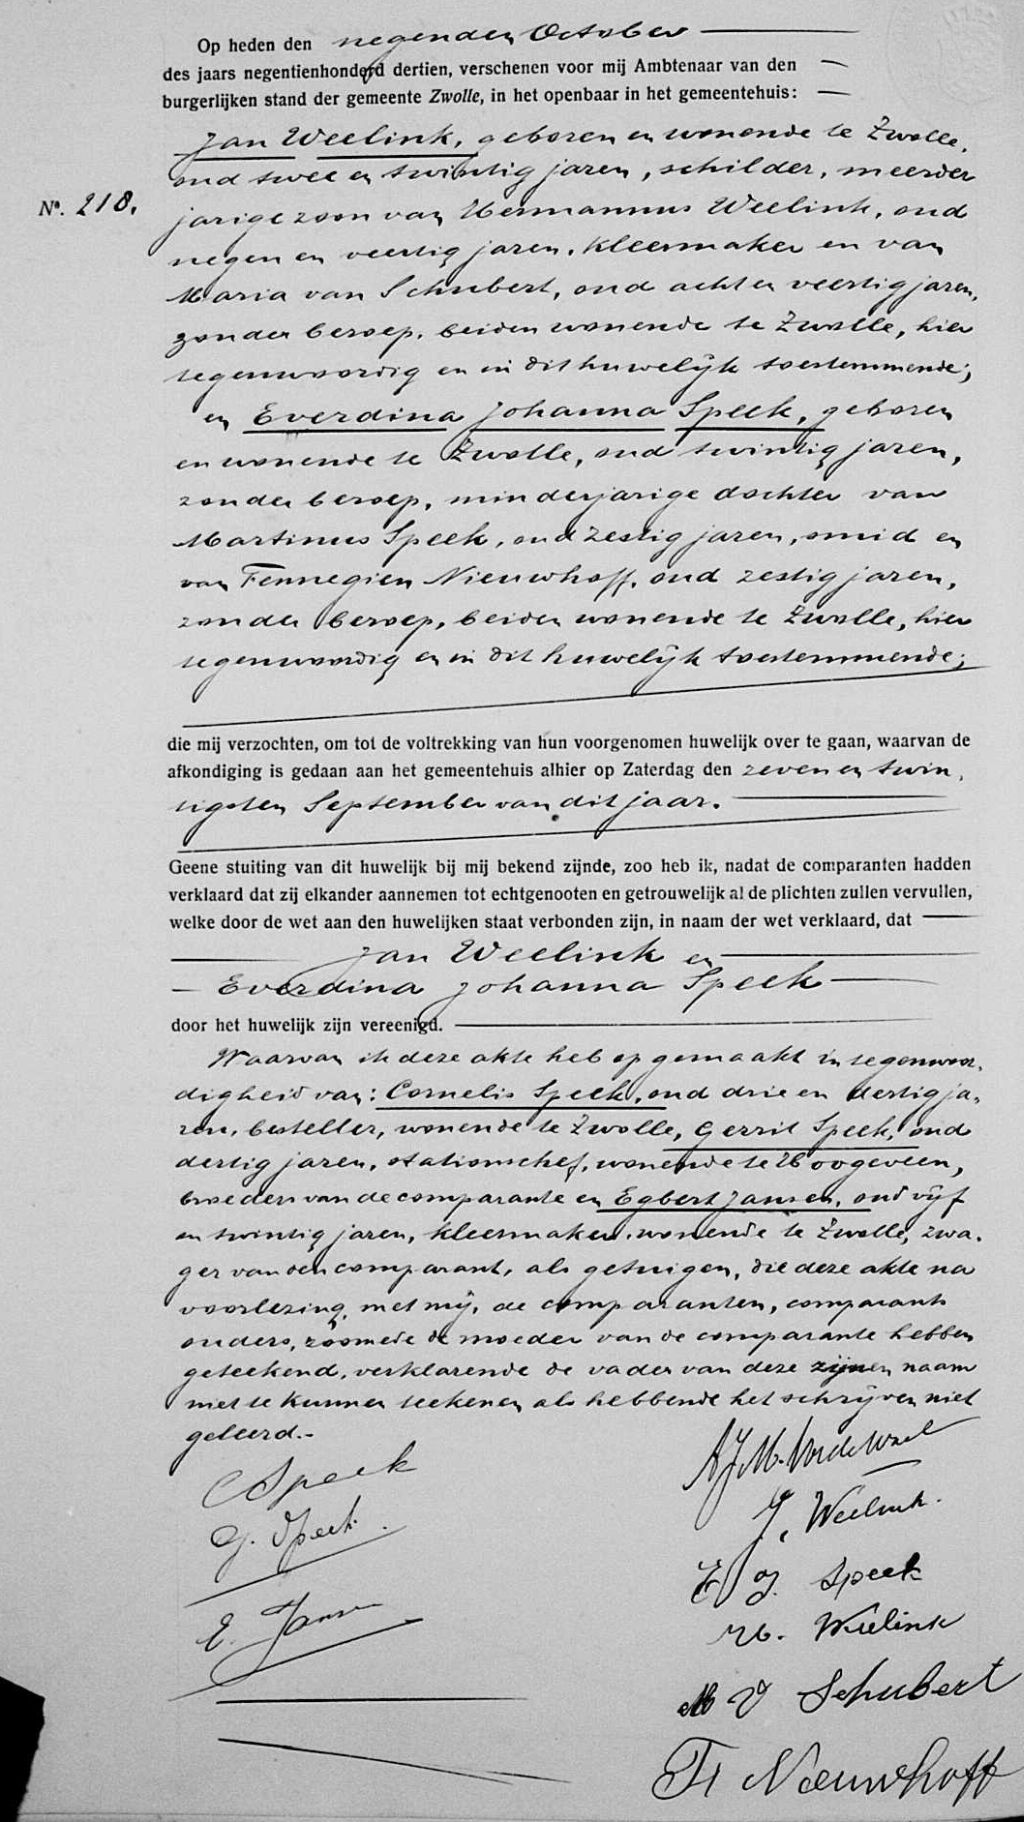 Op heden den negenden October
des jaars negentienhonderd dertien, verschenen voor mij Ambtenaar van den
burgerlijken stand der gemeente Zwolle, in het openbaar in het gemeentehuis:
Jan Weelink, geboren en wonende te Zwolle,
oud twee en twintig jaren, schilder, meerder
No. 218.
jarige zoon van Hermannus Weelink, oud
negen en veertig jaren, kleermaker en van
Maria van Schubert, oud acht en veertig jaren,
zonder beroep, beiden wonende te Zwolle, hier
tegenwoordig en in dit huwelijk toestemmende;
en Everdina Johanna Speek, geboren
en wonende te Zwolle, oud twintig jaren,
zonder beroep, minderjarige dochter van
Martinus Speek, oud zestig jaren, smid en
van Fennegien Nieuwhoff, oud zestig jaren,
zonder beroep, beiden wonende te Zwolle, hier
tegenwoordig en in dit huwelijk toestemmende;
die mij verzochten, om tot de voltrekking van hun voorgenomen huwelijk over te gaan, waarvan de
afkondiging is gedaan aan het gemeentehuis alhier op Zaterdag den zeven en twin
tigsten September van dit jaar.
Geene stuiting van dit huwelijk bij mij bekend zijnde, zoo heb ik, nadat de comparanten hadden
verklaard dat zij elkander aannemen tot echtgenooten en getrouwelijk al de plichten zullen vervullen,
welke door de wet aan den huwelijken staat verbonden zijn, in naam der wet verklaard, dat
Jan Weelink en
Everdina Johanna Speek
door het huwelijk zijn vereenigd.
Waarvan ik deze akte heb opgemaakt in tegenwoor-
digheid van: Cornelis Speek, oud drie en dertig ja-
ren, besteller, wonende te Zwolle, Gerrit Speek, oud
dertig jaren, stationschef, wonende te Hoogeveen,
broeders van de comparante en Egbert Jansen, oud vijf
en twintig jaren, kleermaker, wonende te Zwolle, zwa-
ger van den comparant, als getuigen, die deze akte na
voorlezing met mij, de comparanten, comparants
ouders, zoomede de moeder van de comparante hebben
geteekend, verklarende de vader van deze zijnen naam
niet te kunnen teekenen als hebbende het schrijven niet
geleerd.-
C Speek
G. Speek.
E. Jansen
J. Weelink.
E J. Speek
H. Weelink
M V Schubert
F Nieuwhoff